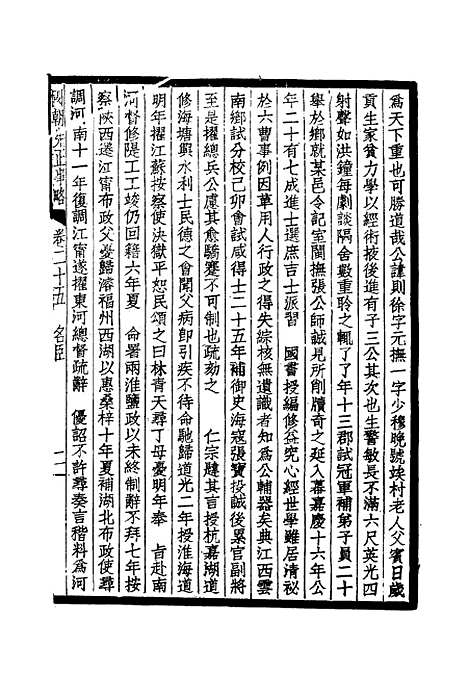 為天下重也可勝道哉公諱則徐字元撫一字少穆晚號竢村老人父賓日歲
貢生家貧力學以經術掖後進有子三公其次也生警敏長不滿六尺英光四
射聲如洪鐘每劇談隔舍嚴重聆之輒了了年十三郡試冠軍補弟子員二十
舉於鄉就某邑令記室閩撫張公師誠見所削牘奇之延入幕嘉慶十六年公
年二十有七成進士選庶吉士派習　國書授編修益究心經世學雖居清祕
於六曹事例因革用人行政之得失綜核無遺識者知為公輔器矣典江西雲
南鄉試分校己卯會試咸得士二十五年補御史海寇張寶投誠後累官副將
至是擢總兵公慮其愈驕蹇不可制也疏劾之　仁宗韙其言授杭嘉湖道
修海塘興水利士民德之會聞父病即引疾不待命馳歸道光二年授淮海道
明年擢江蘇按察使決獄平恕民頌之曰林青天尋丁母憂明年奉　旨赴南
河督修隄工工竣仍回籍六年夏　命署兩淮鹽政以未終制辭不拜七年按
察陝西遷江甯布政父憂歸濬福州西湖以惠桑梓十年夏補湖北布政使尋
調河南十一年復調江甯遂擢東河總督疏辭　優詔不許尋奏言稭料為河
國朝先正事略　卷二十五　名臣　二